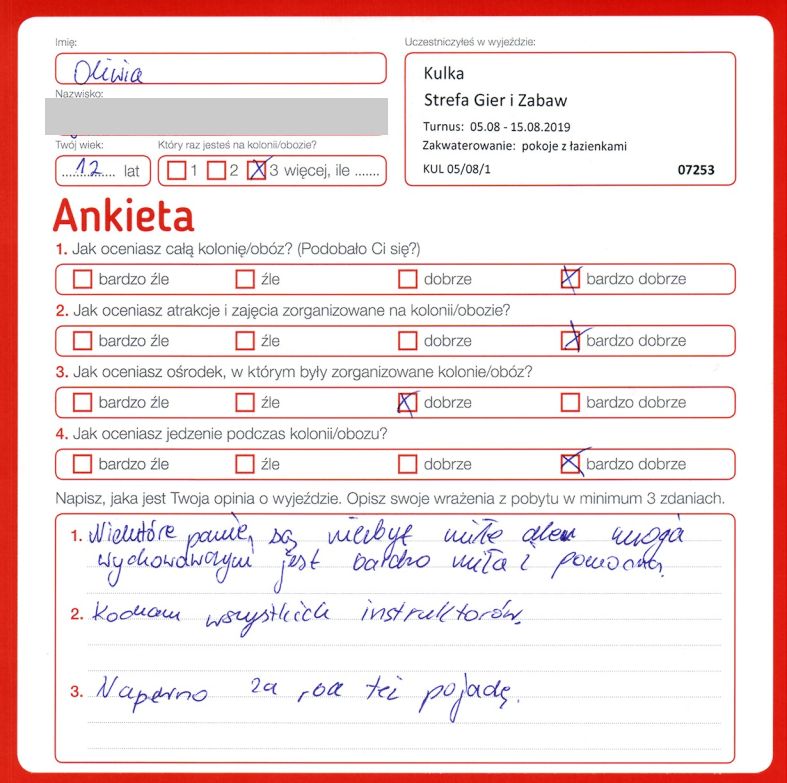 Imię:
Oliwia
Nazwisko:
Twój wiek:
12 lat
Który raz jesteś na kolonii/obozie?
1 2 3 więcej, ile .......
Uczestniczyłeś w wyjeździe:
Kulka
Strefa Gier i Zabaw
Turnus: 05.08 - 15.08.2019
Zakwaterowanie: pokoje z łazienkami
KUL 05/08/1 07253
Ankieta
1. Jak oceniasz całą kolonię/obóz? (Podobało Ci się?)
bardzo źle źle dobrze bardzo dobrze
2. Jak oceniasz atrakcje i zajęcia zorganizowane na kolonii/obozie?
bardzo źle źle dobrze bardzo dobrze
3. Jak oceniasz ośrodek, w którym były zorganizowane kolonie/obóz?
bardzo źle źle dobrze bardzo dobrze
4. Jak oceniasz jedzenie podczas kolonii/obozu?
bardzo źle źle dobrze bardzo dobrze
Napisz, jaka jest Twoja opinia o wyjeździe. Opisz swoje wrażenia z pobytu w minimum 3 zdaniach.
1. Niektóre panie są niezbyt miłe moja
wychowawczyni jest bardzo miła i pomocna.
2. Kocham wszystkich instruktorów.
3. Napewno za rok też pojadę.